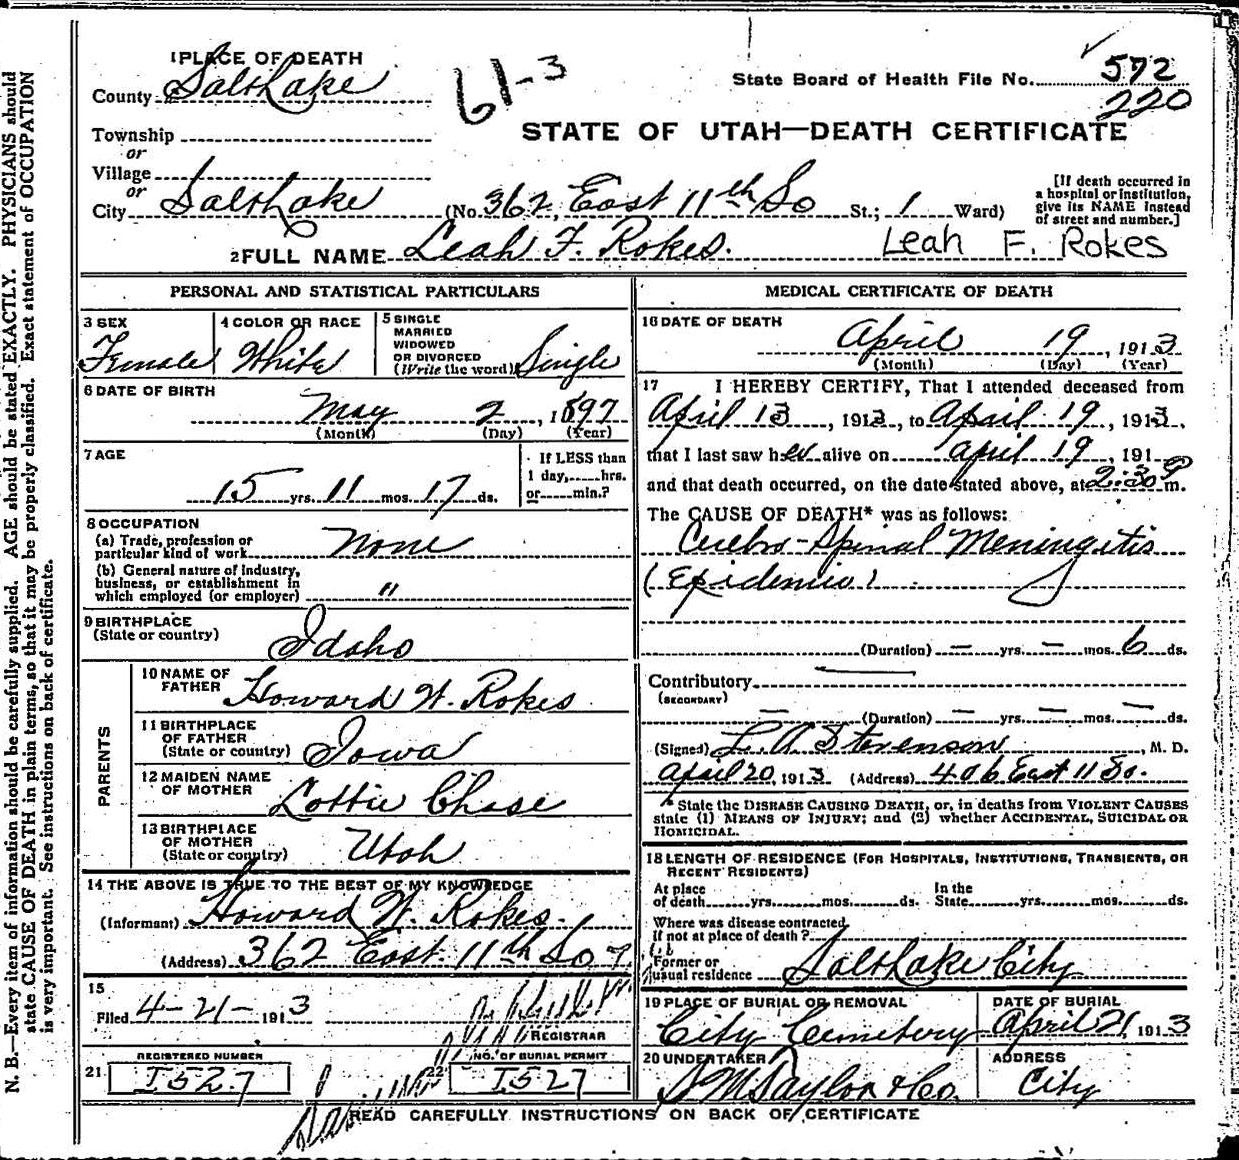 1 PLACE OF DEATH
County Salt Lake
61-3
State Board of Health File No. 572
220
STATE OF UTAH—DEATH CERTIFICATE
Township
or
Village
or
City Salt Lake (No. 362, East 11th So St.; 1 Ward)
[If death occurred in
a hospital or institution,
give its NAME instead
of street and number.]
2 FULL NAME Leah F. Rokes. Leah F. Rokes
PERSONAL AND STATISTICAL PARTICULARS
3 SEX
Female
4 COLOR OR RACE
White
5 SINGLE
MARRIED
WIDOWED
OR DIVORCED
(Write the word) Single
6 DATE OF BIRTH
May 2, 1897
(Month) (Day) (Year)
7 AGE
15 yrs. 11 mos. 17 ds.
If LESS than
1 day, hrs.
or min.?
8 OCCUPATION
(a) Trade, profession or
particular kind of work None
(b) General nature of Industry,
business, or establishment in
which employed (or employer) "
9 BIRTHPLACE
(State or country) Idaho
PARENTS
10 NAME OF
FATHER Howard W. Rokes
11 BIRTHPLACE
OF FATHER
(State or country) Iowa
12 MAIDEN NAME
OF MOTHER Lottie Chase
13 BIRTHPLACE
OF MOTHER
(State or country) Utah
14 THE ABOVE IS TRUE TO THE BEST OF MY KNOWLEDGE
(Informant) Howard W. Rokes.
(Address) 362 East 11th So
15
Filed 4-21- 1913
REGISTRAR
21 REGISTERED NUMBER
I527
22 NO. OF BURIAL PERMIT
I527
MEDICAL CERTIFICATE OF DEATH
16 DATE OF DEATH
April 19, 1913
(Month) (Day) (Year)
17 I HEREBY CERTIFY, That I attended deceased from
April 13, 1913, to April 19, 1913,
that I last saw her alive on April 19, 191
and that death occurred, on the date stated above, at 2:30 P m.
The CAUSE OF DEATH* was as follows:
Cerebro-Spinal Meningitis
(Epidemic)
(Duration) — yrs. — mos. 6 ds.
Contributory
(SECONDARY)
(Duration) — yrs. — mos. — ds.
(Signed) L. A. Stevenson, M. D.
April 20, 1913 (Address) 406 East 11 So.
* State the DISEASE CAUSING DEATH, or, in deaths from VIOLENT CAUSES
state (1) MEANS OF INJURY; and (2) whether ACCIDENTAL, SUICIDAL OR
HOMICIDAL.
18 LENGTH OF RESIDENCE (FOR HOSPITALS, INSTITUTIONS, TRANSIENTS, OR
RECENT RESIDENTS)
At place
of death yrs. mos. ds.
In the
State yrs. mos. ds.
Where was disease contracted
if not at place of death?
Former or
usual residence Salt Lake City
19 PLACE OF BURIAL OR REMOVAL
City Cemetery
DATE OF BURIAL
April 21, 1913
20 UNDERTAKER
S M Taylor & Co.
ADDRESS
City
READ CAREFULLY INSTRUCTIONS ON BACK OF CERTIFICATE
N. B.—Every item of information should be carefully supplied. AGE should be stated EXACTLY. PHYSICIANS should
state CAUSE OF DEATH in plain terms, so that it may be properly classified. Exact statement of OCCUPATION
is very important. See instructions on back of certificate.